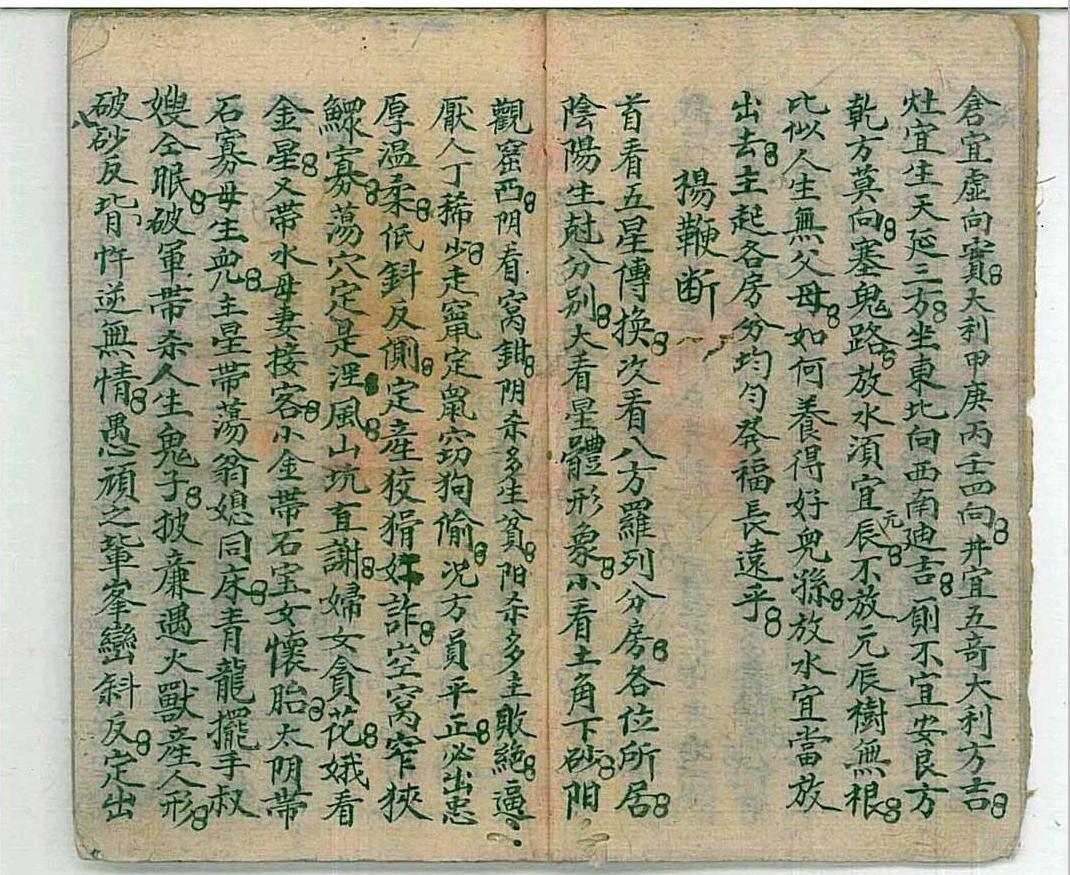 倉宜虛向實大利甲庚丙壬四向井宜五奇大利方吉
灶宜生天延三方坐東北向西南廸吉則不宜安艮方
乾方莫向塞鬼路放水湏宜元辰不放元辰樹無根
比似人生無父母如何養得好兒孫放水宜當放
出去主起各房分均勻發福長遠乎
楊鞭断
首看五星傳換次看八方羅列分房各位所居
陰陽生尅分別大看星體形象小看土角下砂阳
觀窑西阴看窝鉗阴杀多生貧阳杀多主敗絶逼
厭人丁稀少走竄定鼠窃狗偷况方員平正必出忠
厚温柔低斜反側定産狡猾奸詐空窝窄狹
鰥寡蕩穴定是淫風山坑直謝婦女貪花娥看
金星又带水母妻接客小金帶石宝女懷胎太阴帶
石寡母生兒主星帶蕩翁媳同床青龍擺手叔
嫂仝眠破軍带杀人生鬼子披廉遇火獸産人形
破砂反背忤逆無情愚頑之輩峯巒斜反定出